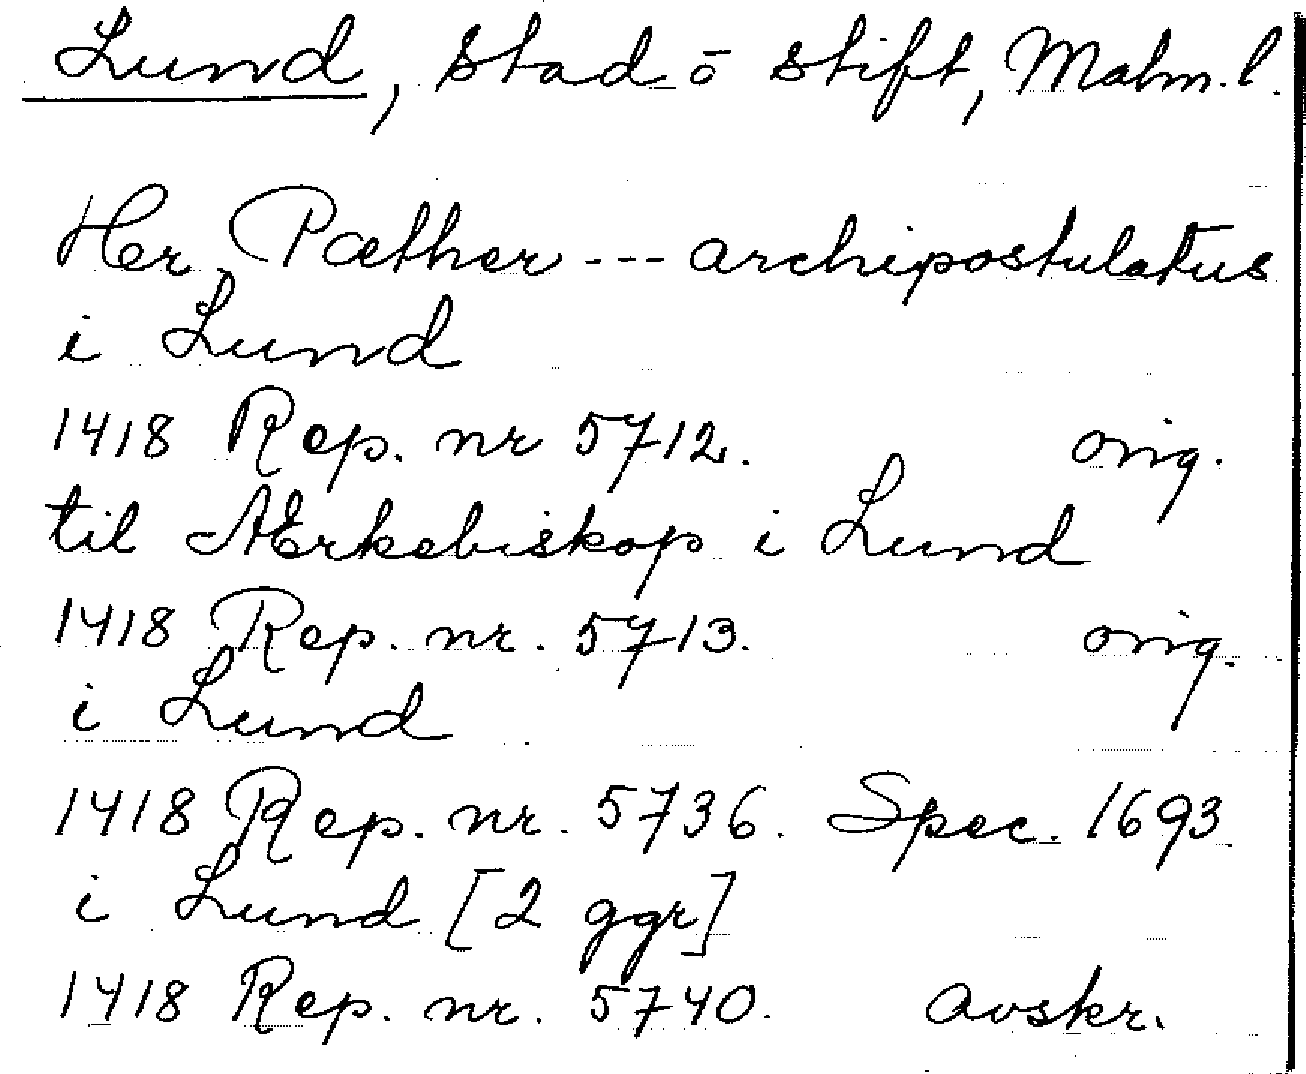 Lund, stad o stift, Malm. l.
Her Pæther --- archipostulatus
i Lund
1418 Rep. nr 5712. orig.
til Ærkebiskop i Lund
1418 Rep. nr. 5713. orig.
i Lund
1418 Rep. nr. 5736. Spec. 1693
i Lund [2 ggr]
1418 Rep. nr. 5740. avskr.